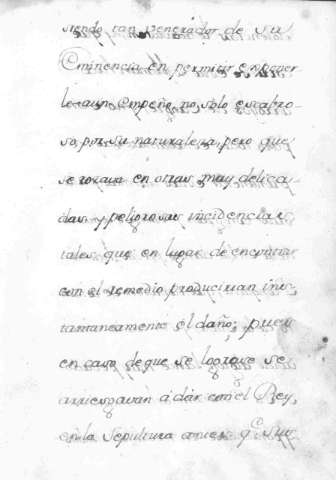 siendo tan Venerador de su
Eminencia en permitir exponer
le a un empeño no solo escabro-
so, por su naturaleza, pero que
se rozava en otras muy delica-
das y peligrosas incidencias
tales que en lugar de encontrar
con el remedio producirian ins-
tantaneamente el daño; pues
en caso de que se lograse se
arriesgavan a dar con el Rey,
en la Sepultura antes q.e sus